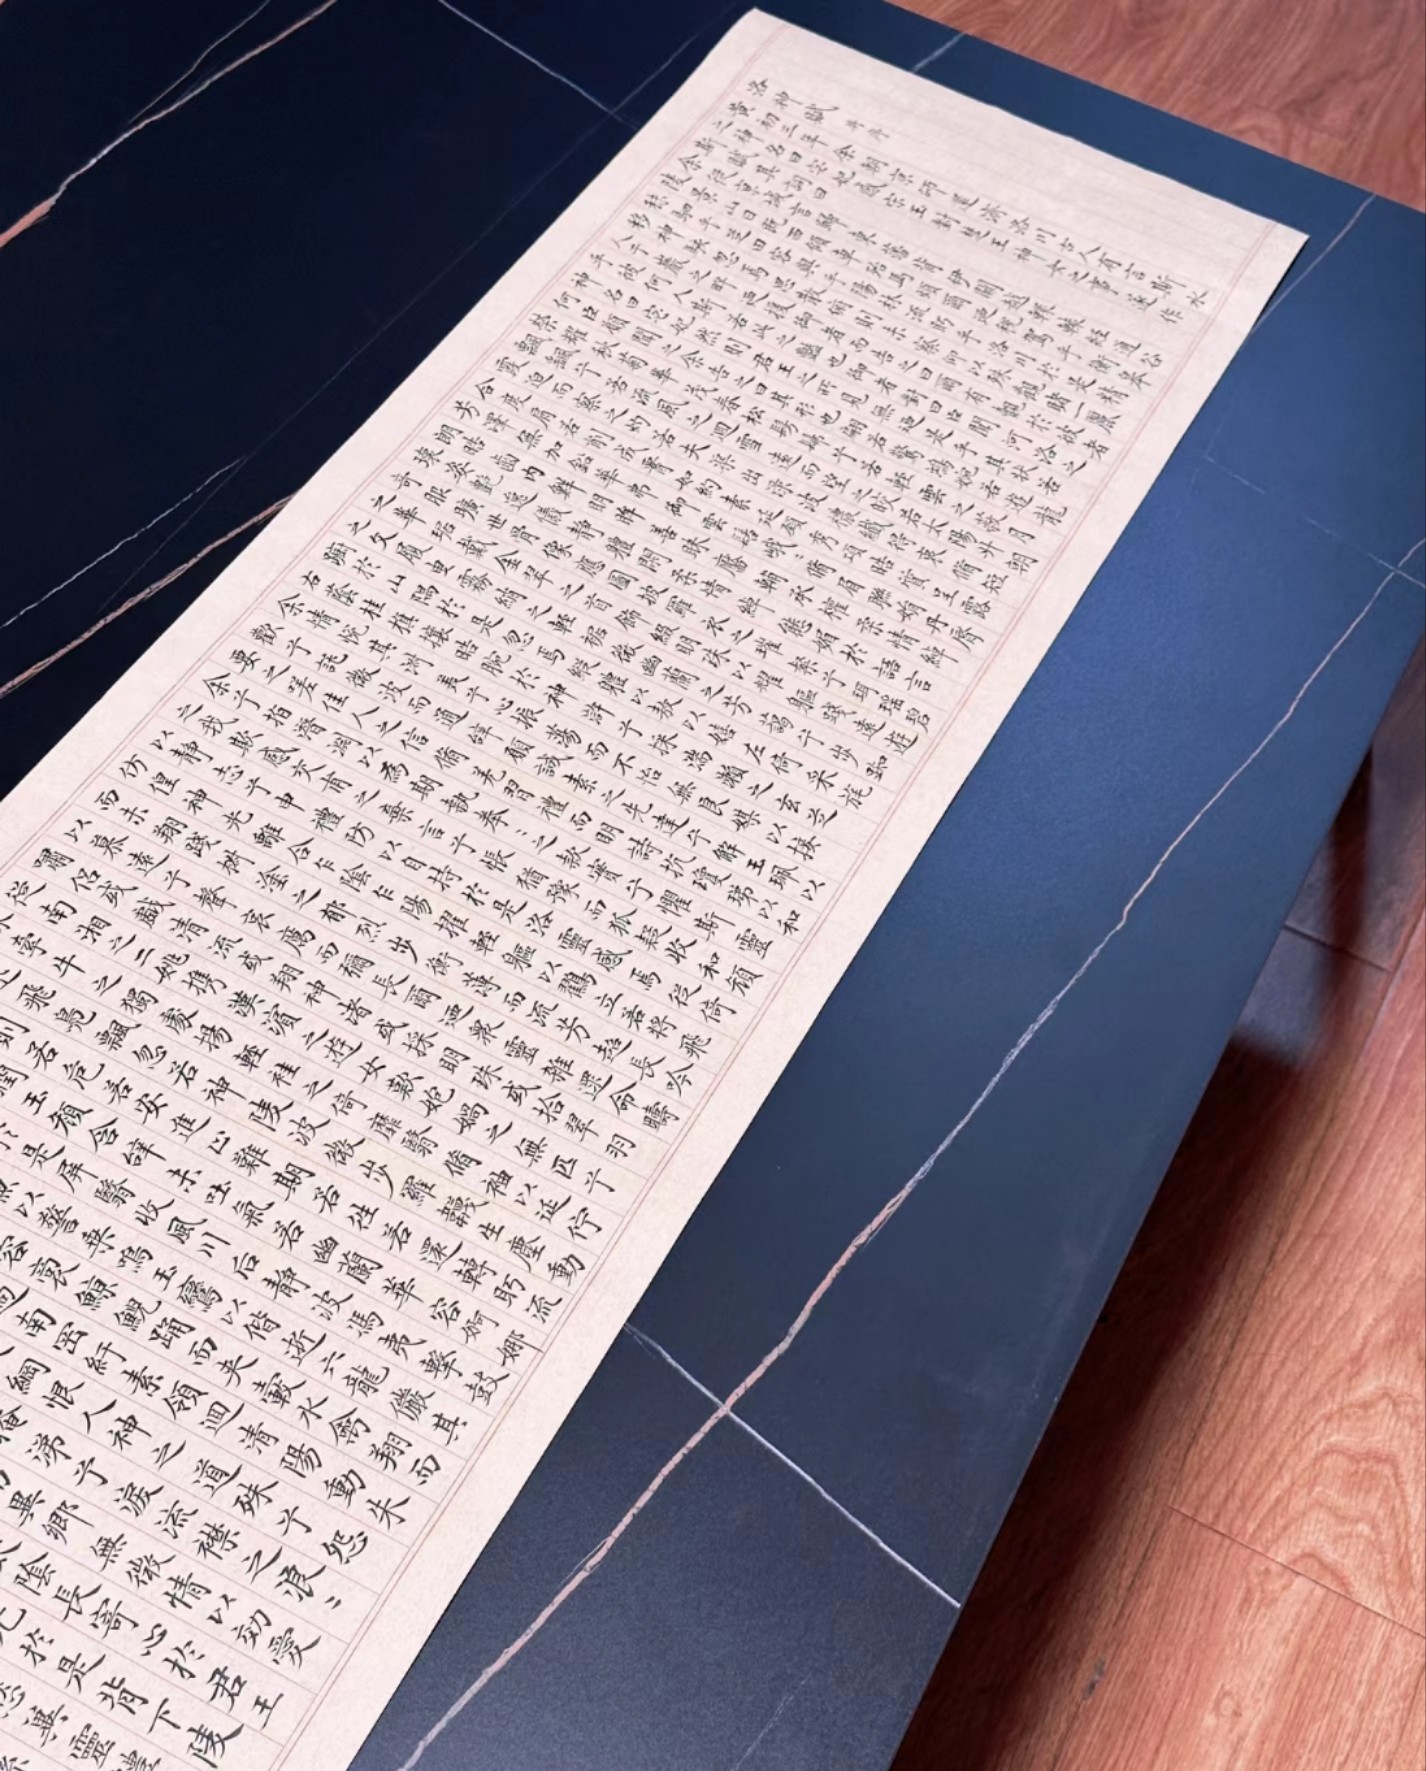 洛神賦 并序
黃初三年余朝京師還濟洛川古人有言斯水
之神名曰宓妃感宋玉對楚王神女之事遂作
斯賦其詞曰
余從京域言歸東藩背伊闕越轘轅經通谷
陵景山日既西傾車殆馬煩爾迺稅駕乎蘅皋
秣駟乎芝田容與乎陽林流眄乎洛川於是精
移神駭忽焉思散俯則未察仰以殊觀睹一麗
人于巖之畔迺援御者而告之曰爾有覿於彼者
乎彼何人斯若此之豔也御者對曰臣聞河洛之
神名曰宓妃然則君王之所見無迺是乎其狀若
何臣願聞之余告之曰其形也翩若驚鴻婉若遊龍
榮耀秋菊華茂春松髣髴兮若輕雲之蔽月
飄飄兮若流風之迴雪遠而望之皎若太陽升朝
霞迫而察之灼若夫渠出淥波穠纖得衷脩短
合度肩若削成腰如約素延頸秀項皓質呈露
芳澤無加鉛華弗御雲髻峨〻脩眉聯娟丹脣
朗皓齒內鮮明眸善睞靨輔承權
瓌姿艷逸儀靜體閑柔情綽態媚於語言
奇服曠世骨像應圖披羅衣之璀粲兮珥瑤碧
之華琚戴金翠之首飾綴明珠以耀軀踐遠遊
之文履曳霧綃之輕裾微幽蘭之芳藹兮步踟
躕於山隅於是忽焉縱體以遨以嬉左倚采旄
右蔭桂旗攘皓腕於神滸兮採湍瀨之玄芝
余情悅其淑美兮心振蕩而不怡無良媒以接
歡兮託微波而通辭願誠素之先達兮解玉佩以
要之嗟佳人之信脩羌習禮而明詩抗瓊珶以和
余兮指潛淵以為期執眷〻之款實兮懼斯靈
之我欺感交甫之棄言兮悵猶豫而狐疑收和顏
以靜志兮申禮防以自持於是洛靈感焉徙倚
仿偟神光離合乍陰乍陽擢輕軀以鶴立若將飛
而未翔踐椒塗之郁烈步衡薄而流芳超長吟
以慕遠兮聲哀厲而彌長爾迺衆靈雜遝命疇
嘯侶或戲清流或翔神渚或採明珠或拾翠羽
從南湘之二姚攜漢濱之遊女歎匏媧之無匹兮
牽牛之獨處揚輕袿之倚靡翳脩袖以延佇
迅飛鳧飄忽若神陵波微步羅襪生塵動
則若危若安進止難期若往若還轉眄流
潤玉顏含辭未吐氣若幽蘭華容婀娜
於是屏翳收風川后靜波馮夷擊鼓
魚以警乘鳴玉鸞以偕逝六龍儼其
容裔鯨鯢踊而夾轂水禽翔而
過南岡紆素領迴清陽動朱
綱恨人神之道殊兮怨
掩涕兮淚流襟之浪〻
異鄉無微情以効愛
陰長寄心於君王
於是背下陵
靈體